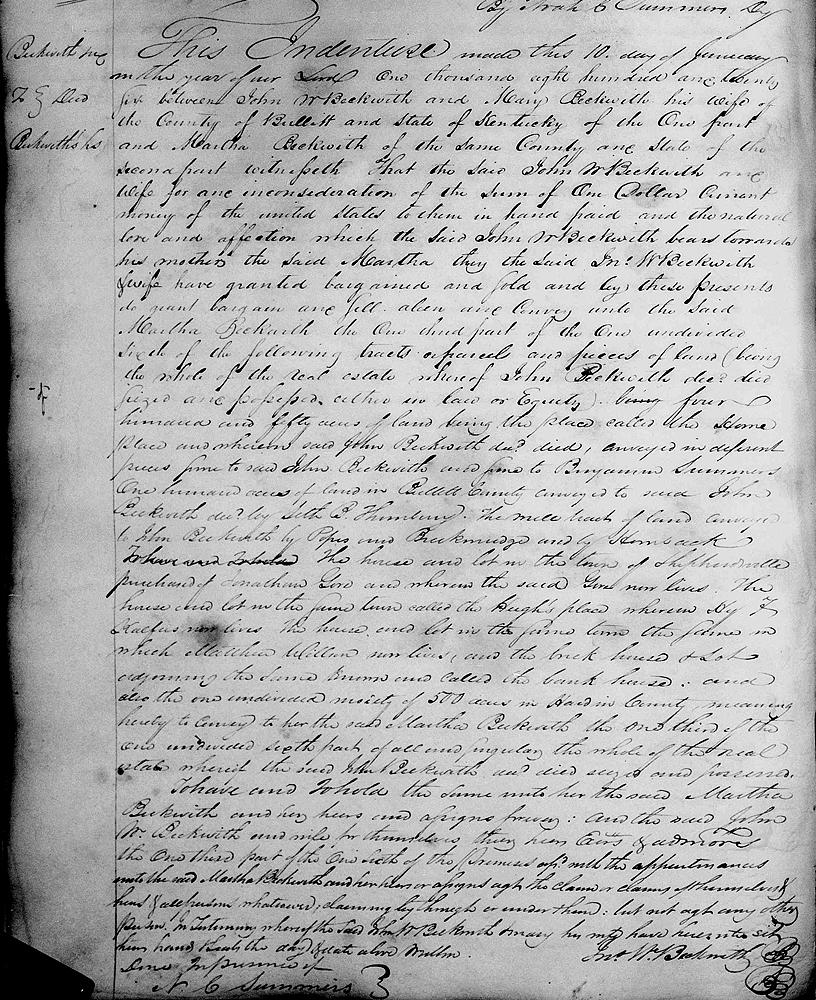 By Noah C Summers Dy
Beckwith
To } Deed
Beckwith's
This Indenture made this 10. day of January
in the year of our Lord One thousand eight hundred and twenty
six between John W Beckwith and Mary Beckwith his wife of
the County of Bullitt and State of Kentucky of the One part
and Martha Beckwith of the same County and State of the
second part witnesseth That the said John W Beckwith and
Wife for and inconsideration of the Sum of One Dollar Current
money of the united States to them in hand paid and the natural
love and affection which the said John W Beckwith bears towards
his mother the said Martha they the said Jno. W Beckwith
& wife have granted bargained and sold and by these presents
do grant bargain and sell alien and Convey unto the said
Martha Beckwith the One third part of the One undivided
Sixth of the following tracts or parcels and pieces of land (being
the whole of the real estate whereof John Beckwith decd. died
seized and possessed either in law or Equity) being four
hundred and fifty acres of land being the place called the Home
place and whereon said John Beckwith decd. died, conveyed in different
pieces some to said John Beckwith and some to Benjamin Summers
One hundred acres of land in Bullitt County conveyed to said John
Beckwith decd. by Seth B. The mill tract of land conveyed
to John Beckwith by Popes and Breckenridge and by Hornback
To have and To hold The house and lot in the town of Shepherdsville
purchased of Jonathan Gore and wherein the said Gore now lives. The
house and lot in the same town called the place wherein
now lives the house and lot in the same town the same in
which Matthew now lives, and the brick house & Lot
adjoining the same known and called the bank house: and
also the one undivided moiety of 500 acres in Hardin County, meaning
hereby to Convey to her the said Martha Beckwith the one third of the
One undivided sixth part of all and singular the whole of the real
estate whereof the said John Beckwith decd. died seized and possessed.
To have and To hold the same unto her the said Martha
Beckwith and her heirs and assigns forever: and the said John
W. Beckwith and wife for themselves their heirs Exors & admors
the One third part of the One sixth of the premises afsd. with the appurtenances
unto the said Martha Beckwith and her heirs or assigns agst. the claim or claims of themselves &
heirs & all persons whatsoever claiming by through or under them: but not agst any other
person. In Testimony whereof the said John W Beckwith & mary his wife have hereunto set
their hands & seals the day & date above written.
Jno. W. Beckwith
Done In presence of
N C Summers }